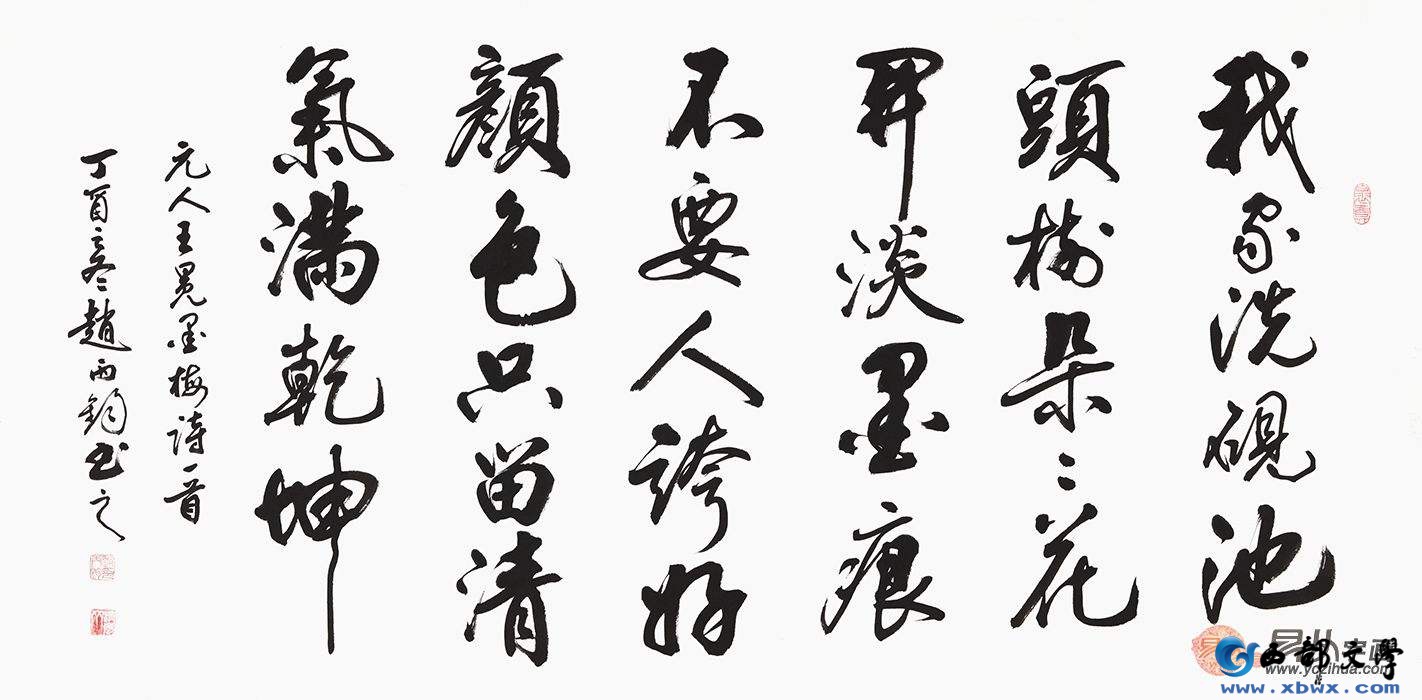 我家洗硯池
頭樹朵々花
開淡墨痕
不要人誇好
顏色只留清
氣滿乾坤
元人王冕墨梅詩一首
丁酉之冬趙鈞書之
西部文學
www.yczihua.com
www.xbwx.com